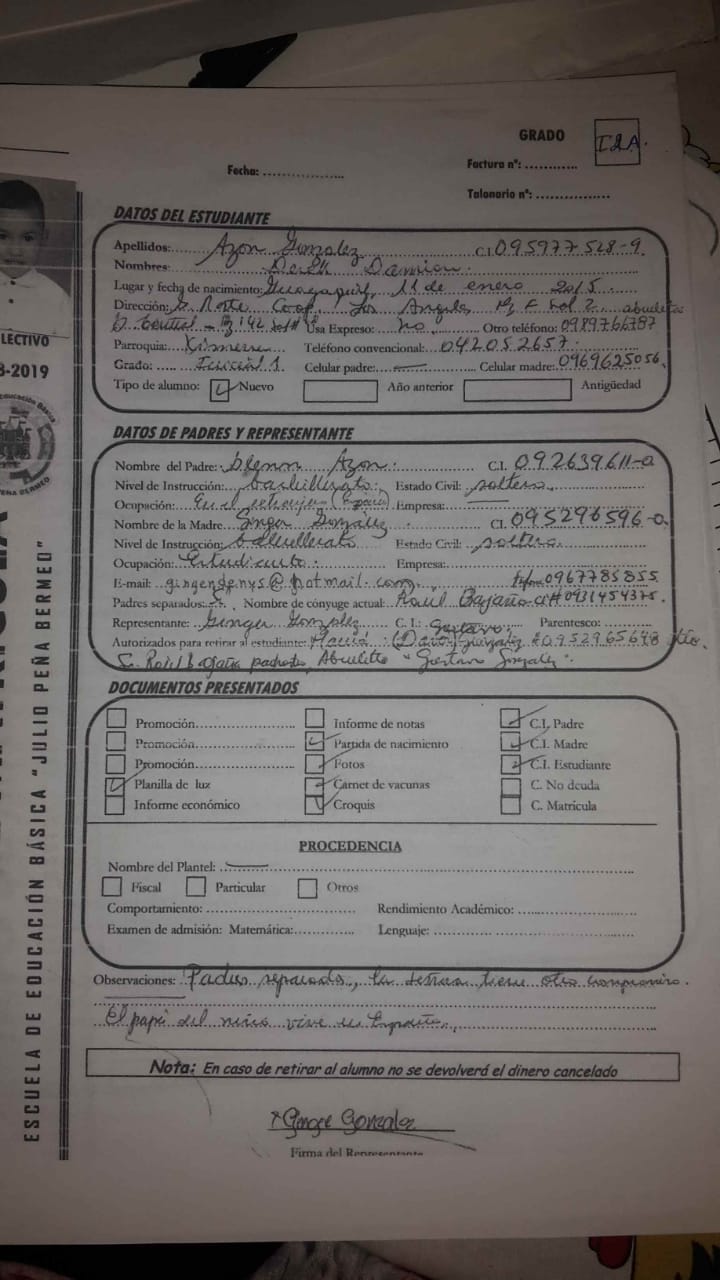 GRADO I2A.
Fecha: ................. Factura nº: ............
Talonario nº: ................
DATOS DEL ESTUDIANTE
Apellidos: Azon Gonzalez C.I. 095977528-9
Nombres: Derek Damian.
Lugar y fecha de nacimiento: Guayaquil, 11 de enero 2015.
Dirección: Coop. Los Angeles Mz F sol 2 abuelita
Usa Expreso: no. Otro teléfono: 0989766787
Parroquia: Teléfono convencional: 042052657.
Grado: Inicial 1. Celular padre: Celular madre: 0969625056.
Tipo de alumno: Nuevo Año anterior Antigüedad
DATOS DE PADRES Y REPRESENTANTE
Nombre del Padre: Azon. C.I. 092639611-0
Nivel de Instrucción: bachillerato. Estado Civil: soltero.
Ocupación: En el extranjero (España) Empresa:
Nombre de la Madre Ginger González CI. 095296596-0.
Nivel de Instrucción: Estado Civil: soltera.
Ocupación: Estudiante. Empresa:
E-mail: 0967785855.
Padres separados: Nombre de cónyuge actual: Raul Bajaña CI# 0931454375.
Representante: Ginger Gonzalez C. I.: Parentesco:
Autorizados para retirar al estudiante: González # 0952965648
Abuelito "Gustavo González".
DOCUMENTOS PRESENTADOS
Promoción Informe de notas C.I. Padre
Promoción Partida de nacimiento C.I. Madre
Promoción Fotos C.I. Estudiante
Planilla de luz Carnet de vacunas C. No deuda
Informe económico Croquis C. Matrícula
PROCEDENCIA
Nombre del Plantel:
Fiscal Particular Otros
Comportamiento: Rendimiento Académico:
Examen de admisión: Matemática: Lenguaje:
Observaciones: Padres separados, la señora tiene otro compromiso.
El papá del niño vive en España.
Nota: En caso de retirar al alumno no se devolverá el dinero cancelado
Ginger Gonzalez
Firma del Representante
LECTIVO
8-2019
ESCUELA DE EDUCACIÓN BÁSICA "JULIO PEÑA BERMEO"